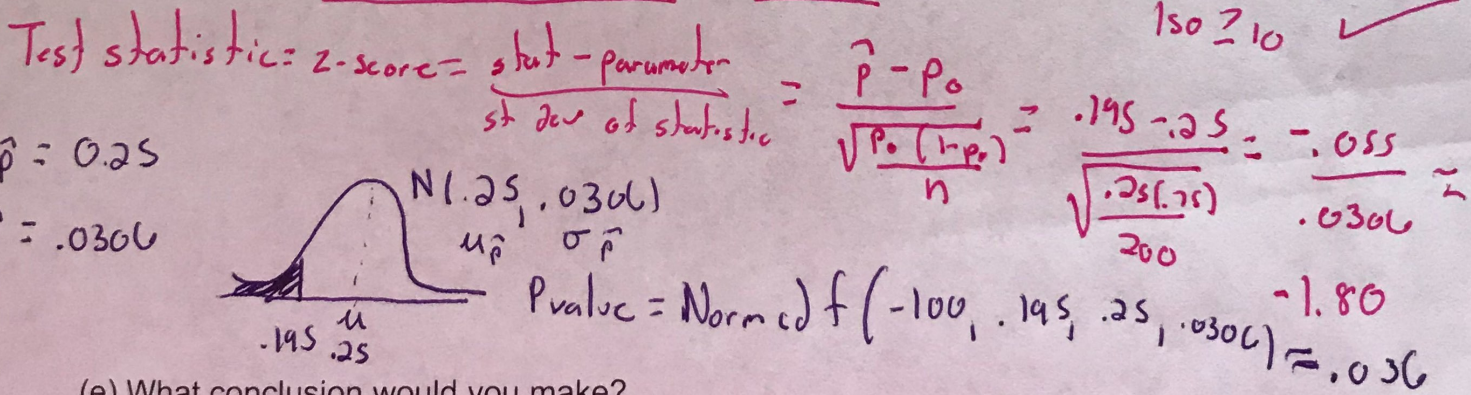 150 ≥ 10 ✓
Test statistic = z-score = stat - parameter / st dev of statistic = p̂ - p₀ / √(p₀(1-p₀)/n) = .195 - .25 / √(.25(.75)/200) = -.055 / .0306 ≈ -1.80
p̂ = 0.25
= .0306
N(.25, .0306)
μp̂ σp̂
.195 μ .25
Pvalue = Normcdf(-100, .195, .25, .0306) ≈ .036
(e) What conclusion would you make?